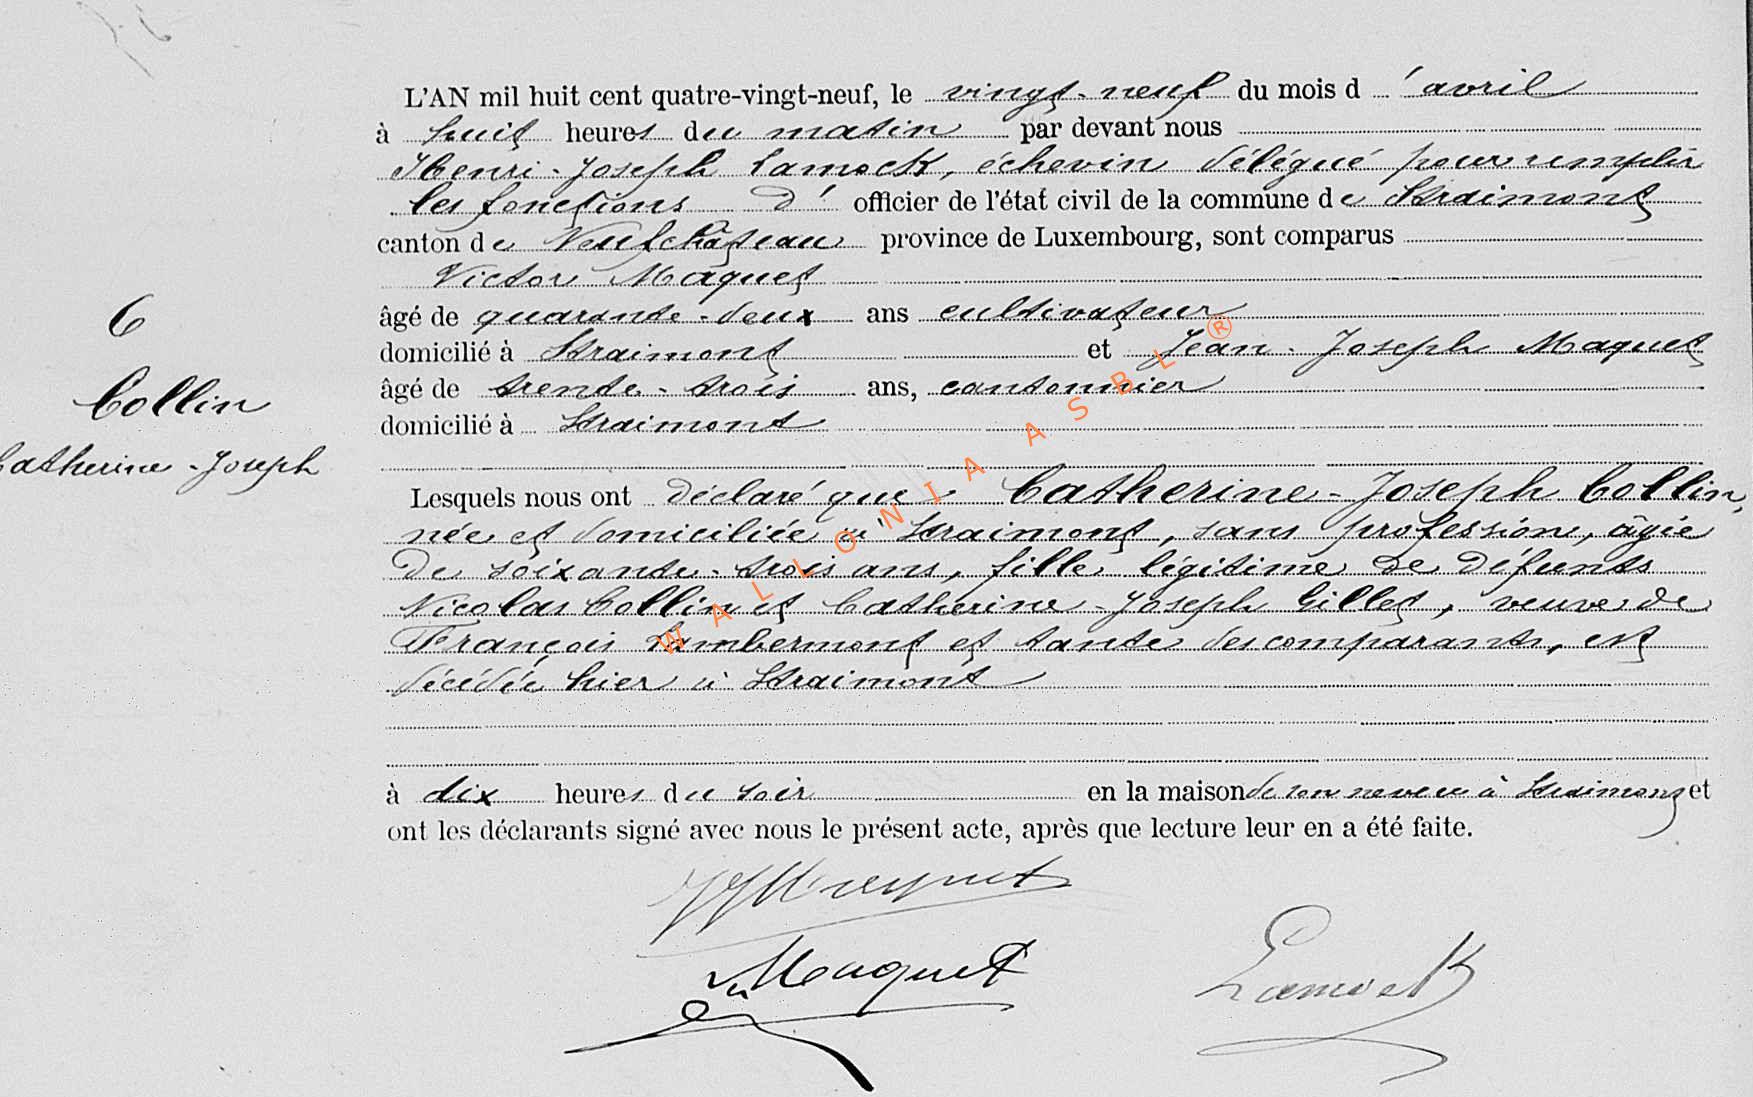 L'AN mil huit cent quatre-vingt-neuf, le vingt-neuf du mois d'avril
à huit heures du matin par devant nous
Henri-Joseph Lamock, échevin délégué pour remplir
les fonctions d'officier de l'état civil de la commune de Straimont
canton de Neufchâteau province de Luxembourg, sont comparus
Victor Maquet
âgé de quarante-deux ans cultivateur
domicilié à Straimont et Jean-Joseph Maquet
âgé de trente-trois ans, cantonnier
domicilié à Straimont
6
Collin
Catherine-Joseph
Lesquels nous ont déclaré que Catherine-Joseph Collin,
née et domiciliée à Straimont, sans profession, âgée
de soixante-trois ans, fille légitime de défunts
Nicolas Collin et Catherine-Joseph Gillet, veuve de
François Lambermont et tante des comparants, est
décédée hier à Straimont
à dix heures du soir en la maison de son neveu à Straimont et
ont les déclarants signé avec nous le présent acte, après que lecture leur en a été faite.
JJ Maquet
V Maquet
Lamock
WALLONIA ASBL ®